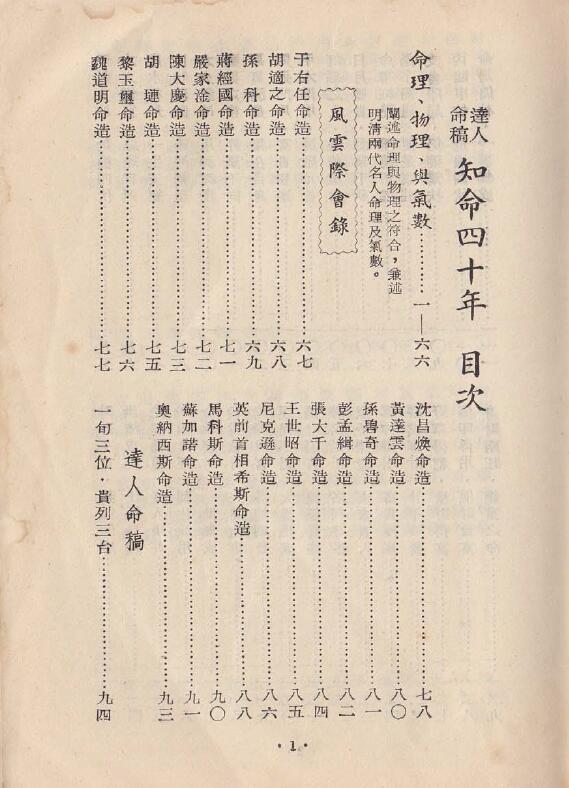 達人命稿 知命四十年 目次
命理、物理、與氣數………一—六六
闡述命理與物理之符合，兼述
明清兩代名人命理及氣數。
風雲際會錄
于右任命造………六七
胡適之命造………六八
孫 科命造………六九
蔣經國命造………七一
嚴家淦命造………七二
陳大慶命造………七三
胡 璉命造………七五
黎玉璽命造………七六
魏道明命造………七七
沈昌煥命造………七八
黃達雲命造………八〇
孫碧奇命造………八一
彭孟緝命造………八二
張大千命造………八四
王世昭命造………八五
尼克遜命造………八六
英前首相希斯命造………八八
馬科斯命造………九〇
蘇加諾命造………九一
奧納西斯命造………九三
達人命稿
一旬三位·貴列三台………九四
·1·